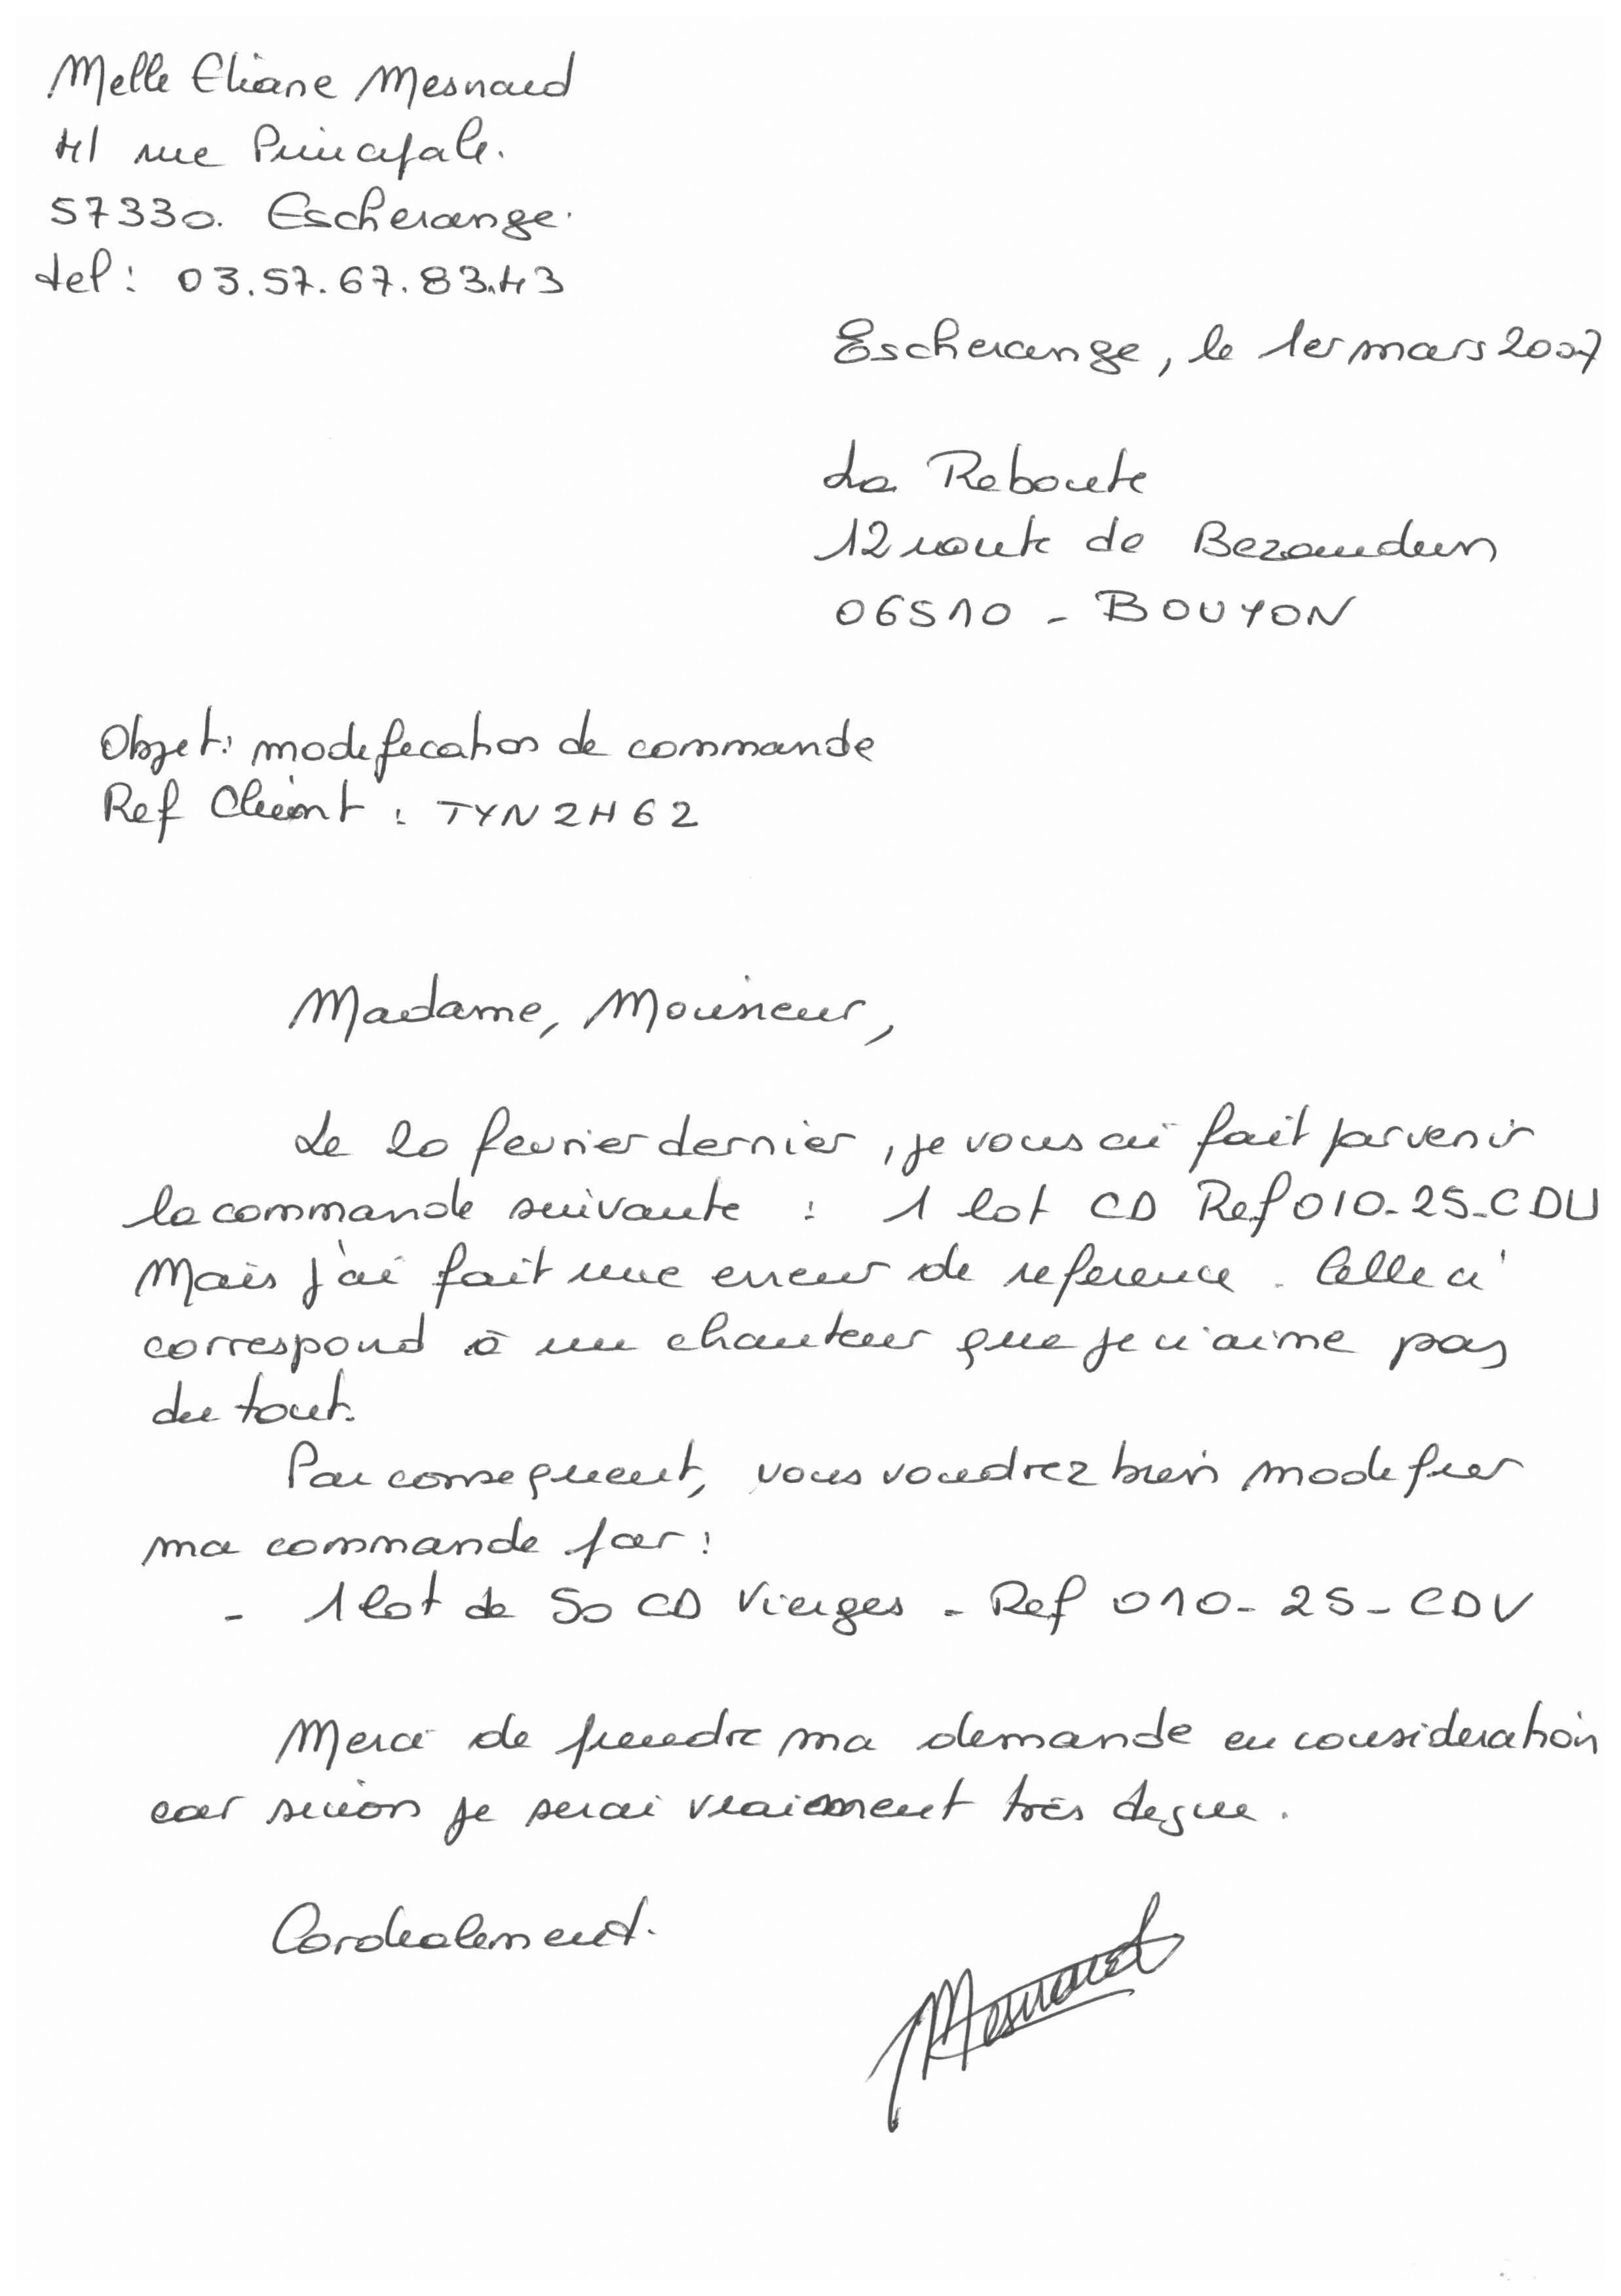 Melle Eliane Mesnard
41 rue Principale.
57330. Escherange.
tel : 03.57.67.83.43
Escherange, le 1er mars 2007
La Reboute
12 route de Bezaudun
06510 - BOUYON
Objet : modification de commande
Ref Client : TYN2H62
Madame, Monsieur,
Le 20 fevrier dernier, je vous ai fait parvenir
la commande suivante : 1 lot CD Ref 010-25-CDU
Mais j'ai fait une erreur de reference. Celle ci
correspond à un chanteur que je n'aime pas
du tout.
Par consequent, vous voudrez bien modifier
ma commande par :
- 1 lot de 50 CD Vierges - Ref 010-25-CDV
Merci de prendre ma demande en consideration
car sinon je serai vraiement très deçue.
Cordialement.
Mesnard